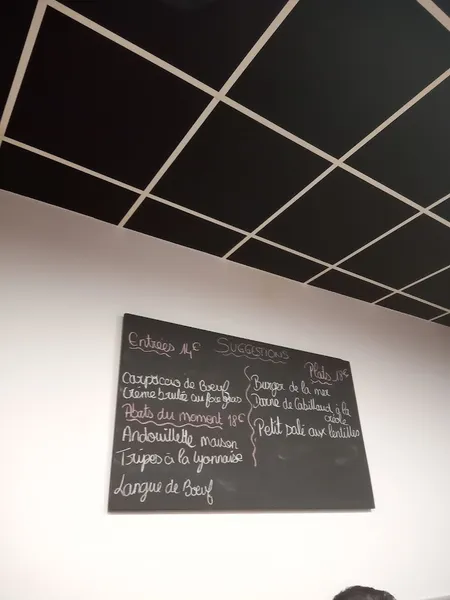 SUGGESTIONS
Entrées 14€
Carpaccio de Boeuf
Crème brulée au foie gras
Plats du moment 18€
Andouillette maison
Tripes à la lyonnaise
Langue de Boeuf
Plats 18€
Burger de la mer
Darne de Cabillaud à la
créole
Petit salé aux lentilles